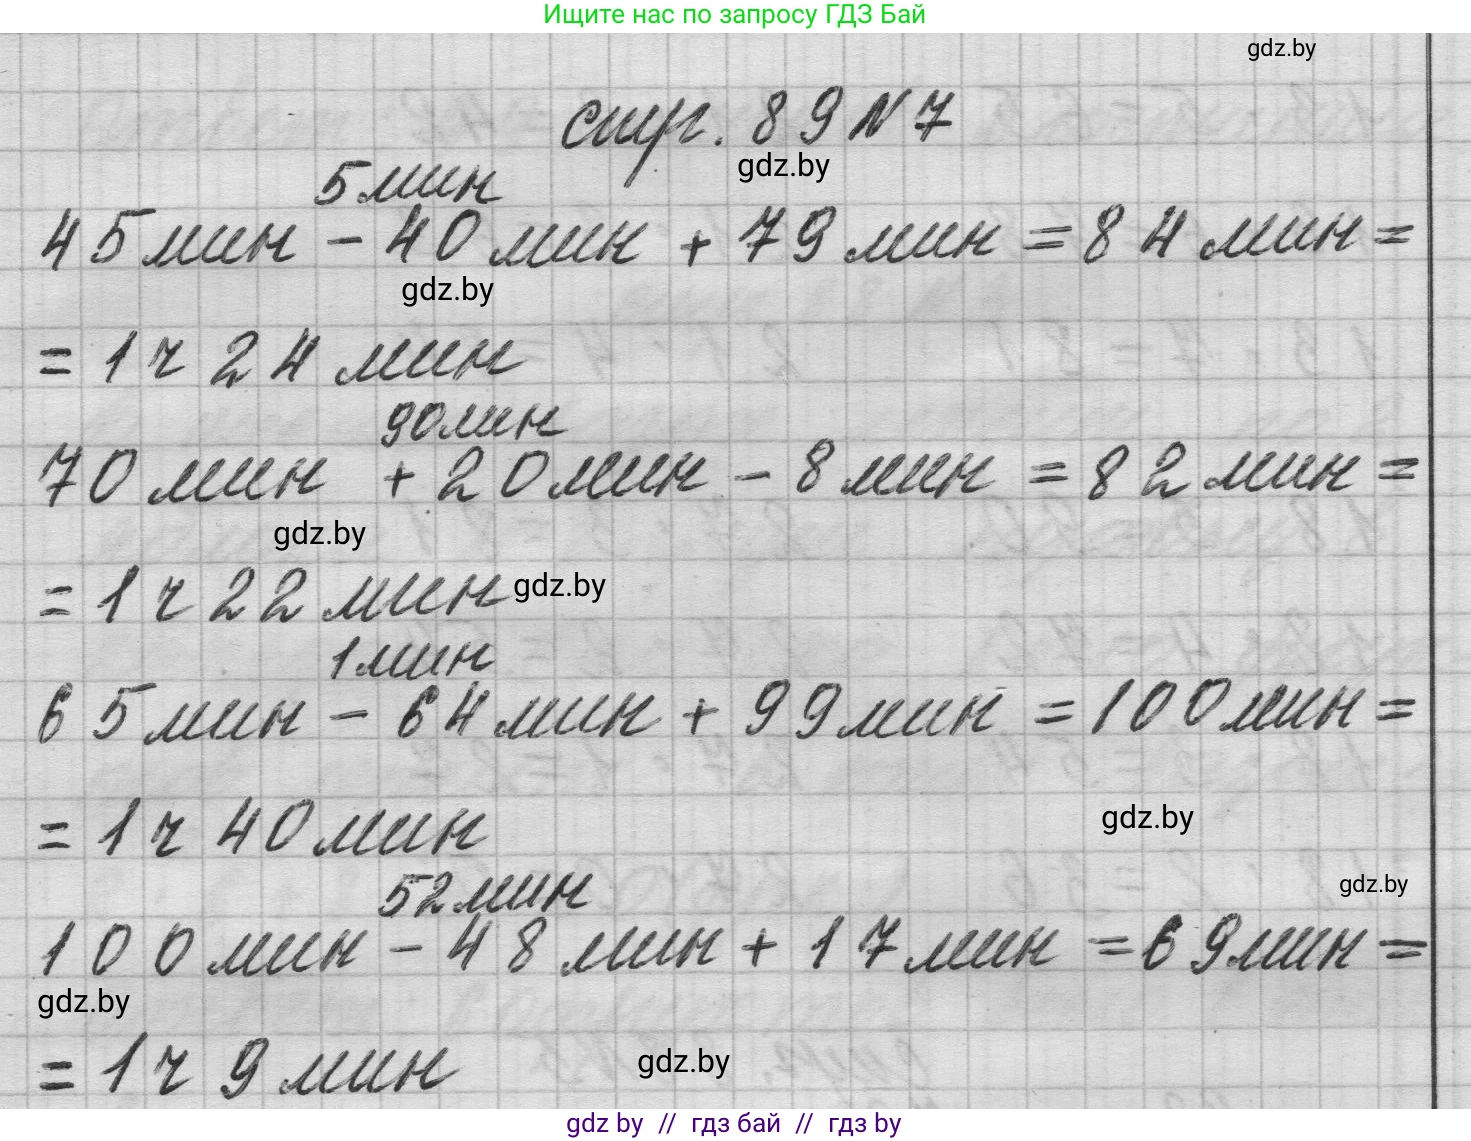 Ищите нас по запросу ГДЗ Бай
gdz.by
стр. 89 № 7
gdz.by
5 мин
45 мин - 40 мин + 79 мин = 84 мин =
gdz.by
= 1 ч 24 мин
90 мин
70 мин + 20 мин - 8 мин = 82 мин =
gdz.by
= 1 ч 22 мин gdz.by
1 мин
65 мин - 64 мин + 99 мин = 100 мин =
gdz.by
= 1 ч 40 мин
gdz.by
52 мин
100 мин - 48 мин + 17 мин = 69 мин =
gdz.by
= 1 ч 9 мин gdz.by
gdz by // гдз бай // gdz by